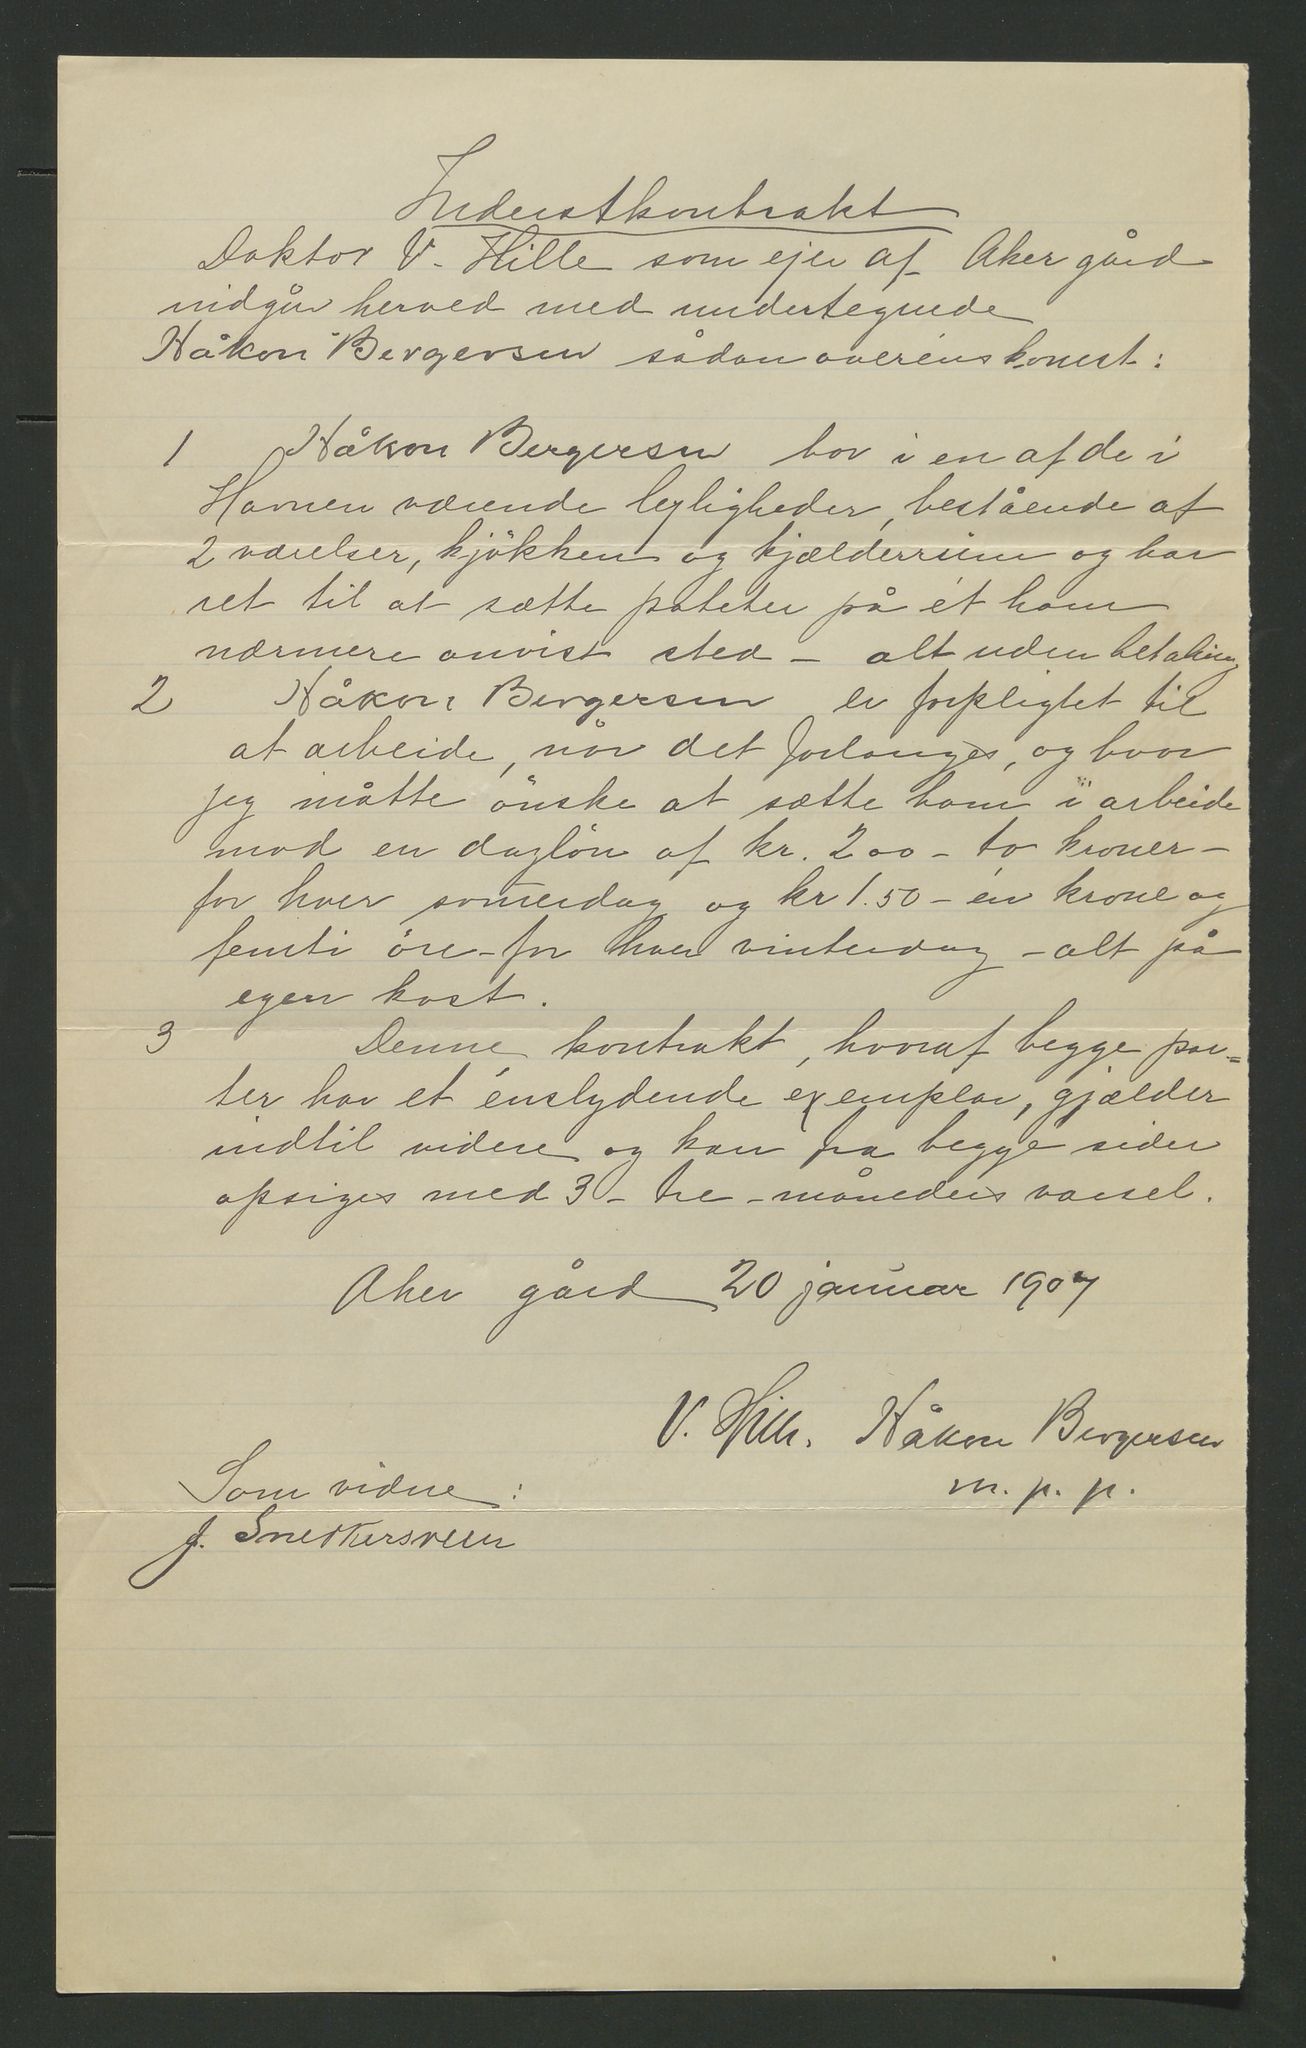 Inderstkontrakt
Doktor V. Hille som ejer af Aker gård
indgår herved med undertegnede
Håkon Bergersen sådan overénskomst:
1 Håkon Bergersen bor i en af de i
Havnen værende lejligheder, bestående af
2 værelser, kjökken og kjælderrum og har
ret til at sætte poteter på ét ham
nærmere anvist sted – alt uden betaling
2 Håkon Bergersen er forpligtet til
at arbeide, når det forlanges, og hvor
jeg måtte önske at sætte ham i arbeide
mod en daglön af kr. 2.00 – to kroner –
for hver somerdag og kr 1.50 – én krone og
femti öre – for hver vinterdag – alt på
egen kost.
3 Denne kontrakt, hvoraf begge par=
ter har et énslydende exemplar, gjælder
indtil videre og kan fra begge sider
opsiges med 3 – tre – måneders varsel.
Aker gård 20 januar 1907
V. Hille. Håkon Bergersen
m. p. p.
Som vidne:
J. Snekkersveen